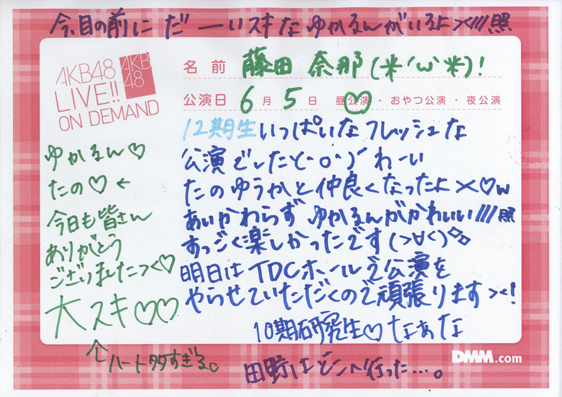 今目の前にだーいスキなゆかるんがいるよ><///照
AKB48
LIVE!!
ON DEMAND
AKB
48
名前 藤田 奈那(*'ω'*)!
公演日 6月5日 昼公演・おやつ公演・夜公演
12期生いっぱいなフレッシュな
公演でしたと・o・)/わーい
たのゆうかと仲良くなったよ><♡w
あいかわらずゆかるんがかわいい///照
すっごく楽しかったです(>∀<)
明日はTDCホールで公演を
やらせていただくので頑張ります><!
10期研究生♡なぁな
ゆかるん♡
たの♡←
今日も皆さん
ありがとう
ございました><♡
大スキ♡♡
↑ハート多すぎる。
田野はどこへ行った…。
DMM.com